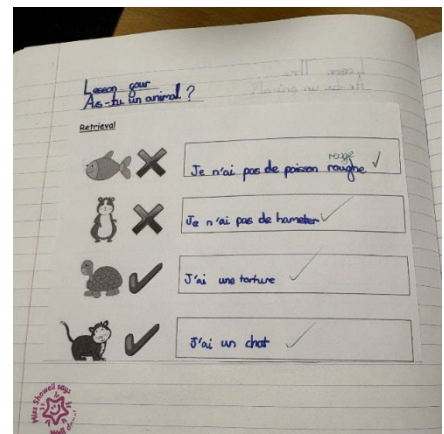 Lesson four
As-tu un animal?
Retrieval
rouge
Je n'ai pas de poisson roughe
Je n'ai pas de hamster
J'ai une torture
J'ai un chat
Miss Showell says
Well done...!